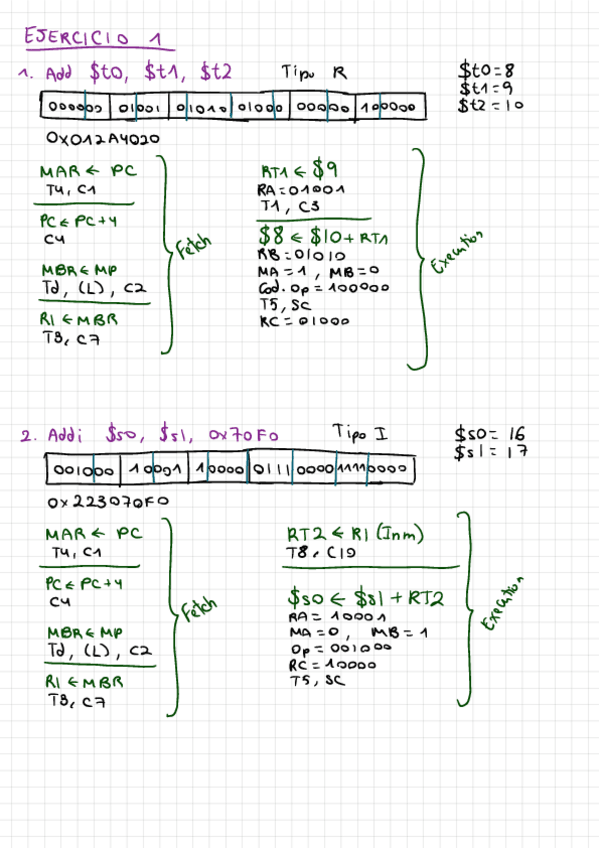 EJERCICIO 1
1. Add $t0, $t1, $t2 Tipo R
$t0=8
$t1=9
$t2=10
000000 01001 01010 01000 00000 100000
0x012A4020
MAR ← PC
T4, C1
PC ← PC+4
C4
MBR ← MP
Td, (L), C2
RI ← MBR
T3, C7
Fetch
RT1 ← $9
RA=01001
T1, C3
$8 ← $10 + RT1
RB=01010
MA=1, MB=0
Cod. Op = 100000
T5, SC
RC=01000
Execution
2. Addi $s0, $s1, 0x70F0 Tipo I
$s0= 16
$s1= 17
001000 10001 10000 0111 0000 1111 0000
0x223070F0
MAR ← PC
T4, C1
PC ← PC+4
C4
MBR ← MP
Td, (L), C2
RI ← MBR
T3, C7
Fetch
RT2 ← RI (Inm)
T8, C19
$s0 ← $s1 + RT2
RA= 10001
MA=0, MB=1
Op= 001000
RC= 10000
T5, SC
Execution